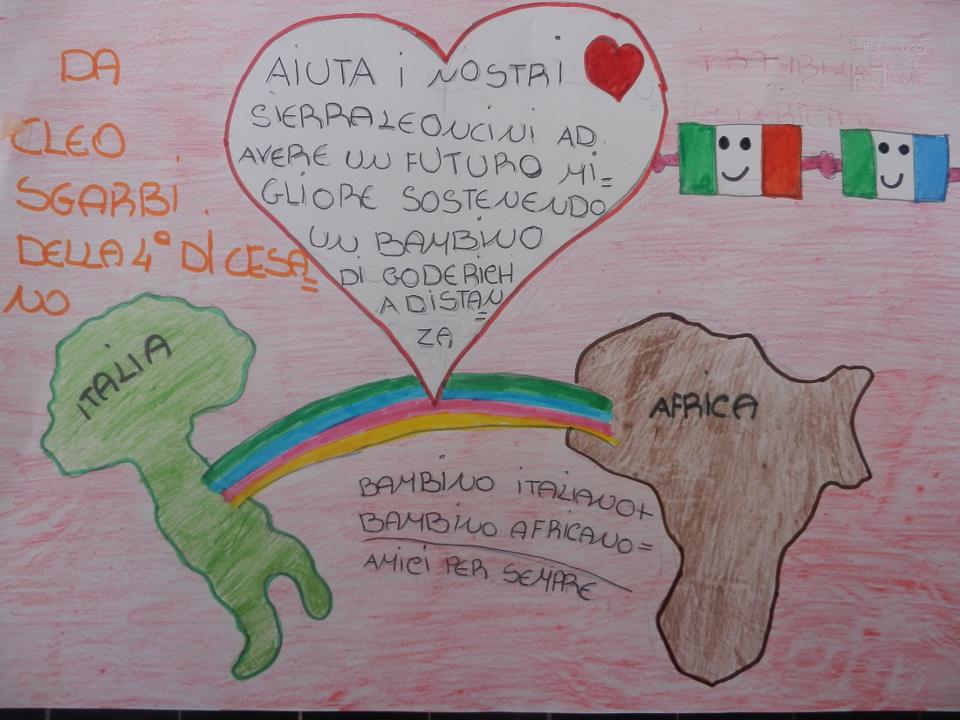 DA
CLEO
SGARBI.
DELLA 4° DI CESA=
NO
AIUTA i NOSTRI
SIERRALEONCINI AD
AVERE UN FUTURO MI=
GLIORE SOSTENENDO
UN BAMBINO
DI GODERICH
A DISTAN=
ZA
ITALIA
AFRICA
BAMBINO ITALIANO+
BAMBINO AFRICANO=
AMICI PER SEMPRE